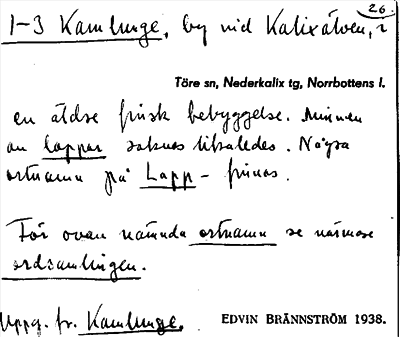 26.
1-3 Kamlunge, by vid Kalixälven, i
Töre sn, Nederkalix tg, Norrbottens l.
en äldre finsk bebyggelse. Minnen
om lappar saknas likaledes. Några
ortnamn på Lapp- finnas.
För ovan nämnda ortnamn se närmare
ordsamlingen.
Uppg. fr. Kamlunge.
EDVIN BRÄNNSTRÖM 1938.